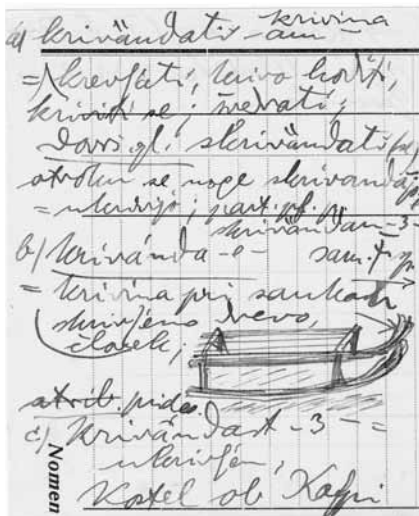 krivina
a) krivändati - am -
=) krevljati, krivo hoditi,
kriviti se; švedrati;
Dovr. gl. skrivändati
otroku se noge skrivandajo
= ukrivijo; part. pf. p.
skrivändan -3-
b) krivánda -e- sam. f
= krivina pri sankah
skrivljeno drevo,
člověk;
atrib. prid.
c) krivändast -3- =
ukrivljen,
Kostel ob Kolpi
Nomen